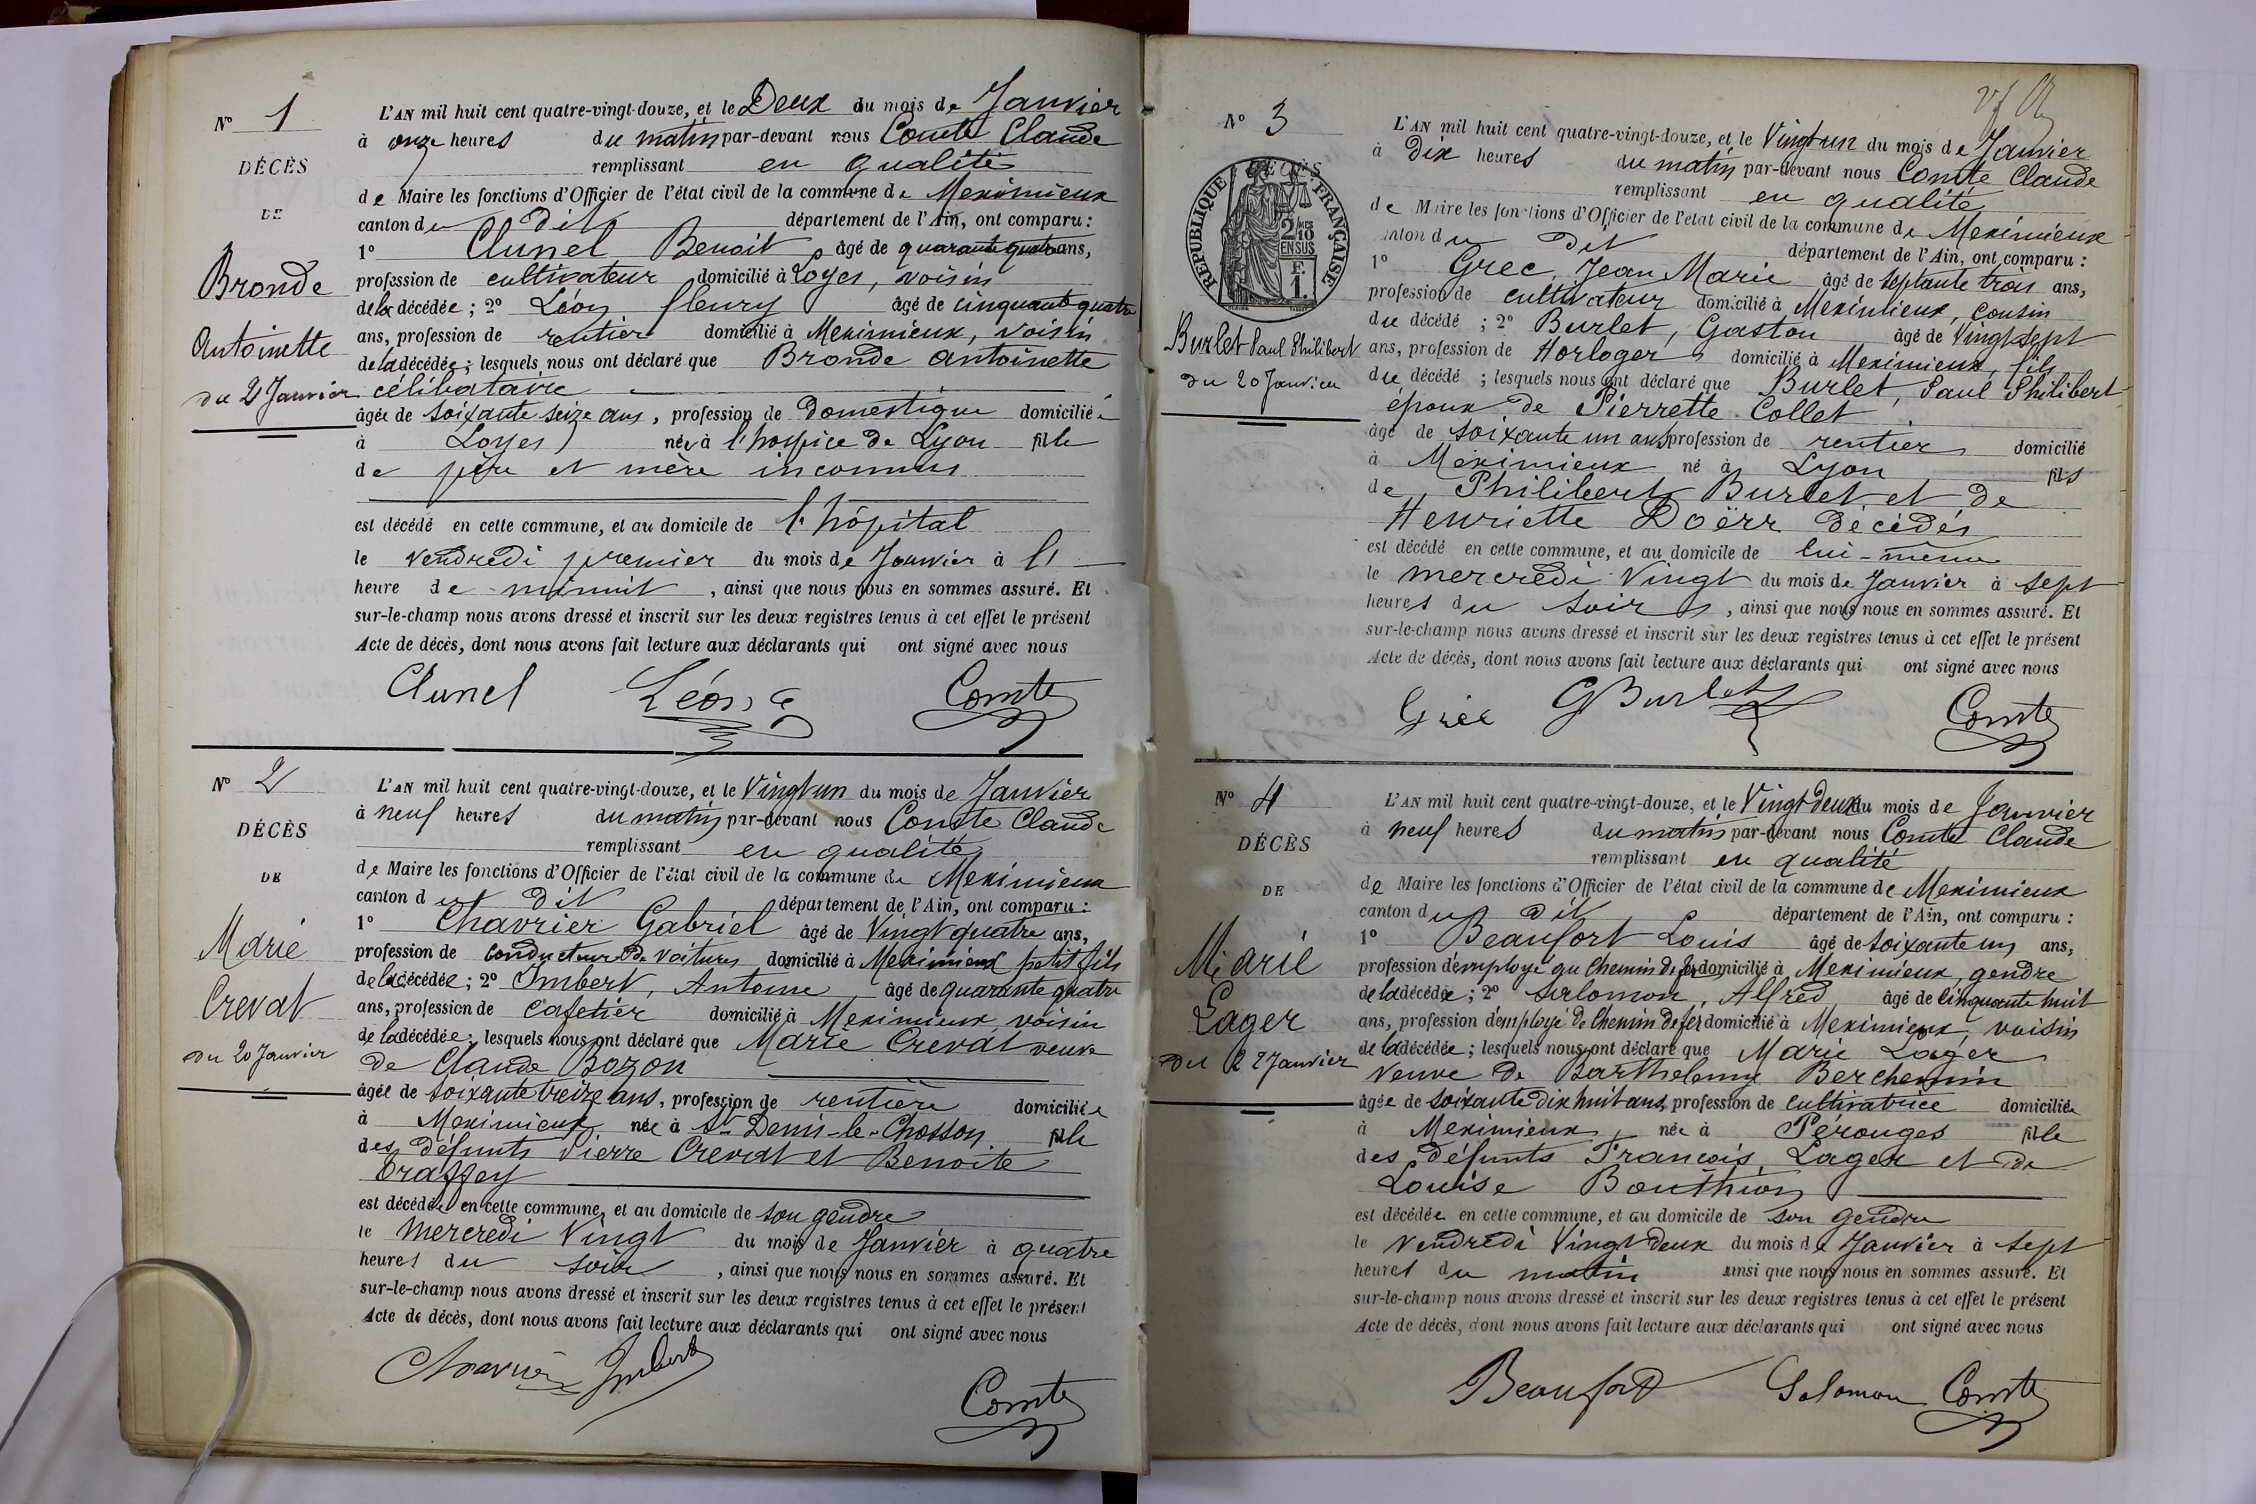 N° 1
DÉCÈS
DE
Bronde
Antoinette
du 2 Janvier
L'AN mil huit cent quatre-vingt-douze, et le Deux du mois de Janvier
à onze heures du matin par-devant nous Comte Claude
remplissant en qualité
de Maire les fonctions d'Officier de l'état civil de la commune de Meximieux
canton du dit département de l'Ain, ont comparu :
1° Clunel Benoit âgé de quarante quatre ans,
profession de cultivateur domicilié à Loyes, voisin
de la décédée ; 2° Léon fleury âgé de cinquante quatre
ans, profession de rentier domicilié à Meximieux, voisin
de la décédée ; lesquels nous ont déclaré que Bronde Antoinette
célibataire
âgée de soixante seize ans, profession de Domestique domiciliée
à Loyes née à l'hospice de Lyon fille
de père et mère inconnus
est décédé en cette commune, et au domicile de l'hôpital
le vendredi premier du mois de Janvier à l'
heure de minuit, ainsi que nous nous en sommes assuré. Et
sur-le-champ nous avons dressé et inscrit sur les deux registres tenus à cet effet le présent
Acte de décès, dont nous avons fait lecture aux déclarants qui ont signé avec nous
Clunel Léon Comte
N° 2
DÉCÈS
DE
Marie
Crevat
du 20 Janvier
L'AN mil huit cent quatre-vingt-douze, et le Vingt un du mois de Janvier
à neuf heures du matin par-devant nous Comte Claude
remplissant en qualité
de Maire les fonctions d'Officier de l'état civil de la commune de Meximieux
canton du dit département de l'Ain, ont comparu :
1° Chavrier Gabriel âgé de Vingt quatre ans,
profession de conducteur de voitures domicilié à Meximieux petit fils
de la décédée ; 2° Imbert, Antoine âgé de quarante quatre
ans, profession de cafetier domicilié à Meximieux, voisin
de la décédée ; lesquels nous ont déclaré que Marie Crevat veuve
de Claude Bozon
âgée de soixante treize ans, profession de rentière domiciliée
à Meximieux née à St Denis-le-Chosson fille
des défunts Pierre Crevat et Benoite
Traffey
est décédée en cette commune, et au domicile de son gendre
le mercredi Vingt du mois de Janvier à quatre
heures du soir, ainsi que nous nous en sommes assuré. Et
sur-le-champ nous avons dressé et inscrit sur les deux registres tenus à cet effet le présent
Acte de décès, dont nous avons fait lecture aux déclarants qui ont signé avec nous
Chavrier Imbert
Comte
N° 3
DÉCÈS
RÉPUBLIQUE FRANÇAISE
2/10 EN SUS
F. 1.
Burlet Paul Philibert
du 20 Janvier
L'AN mil huit cent quatre-vingt-douze, et le Vingt un du mois de Janvier
à Dix heures du matin par-devant nous Comte Claude
remplissant en qualité
de Maire les fonctions d'Officier de l'état civil de la commune de Meximieux
canton du dit département de l'Ain, ont comparu :
1° Grec, Jean Marie âgé de septante trois ans,
profession de cultivateur domicilié à Meximieux, cousin
du décédé ; 2° Burlet, Gaston âgé de Vingt sept
ans, profession de Horloger domicilié à Meximieux, fils
du décédé ; lesquels nous ont déclaré que Burlet, Paul Philibert
époux de Pierrette Collet
âgé de soixante un ans profession de rentier domicilié
à Meximieux né à Lyon fils
de Philibert Burlet et de
Henriette Doërr décédés
est décédé en cette commune, et au domicile de lui-même
le mercredi Vingt du mois de Janvier à sept
heures du soir, ainsi que nous nous en sommes assuré. Et
sur-le-champ nous avons dressé et inscrit sur les deux registres tenus à cet effet le présent
Acte de décès, dont nous avons fait lecture aux déclarants qui ont signé avec nous
Grec G Burlet Comte
N° 4
DÉCÈS
DE
Marie
Lager
du 22 Janvier
L'AN mil huit cent quatre-vingt-douze, et le Vingt Deux du mois de Janvier
à neuf heures du matin par-devant nous Comte Claude
remplissant en qualité
de Maire les fonctions d'Officier de l'état civil de la commune de Meximieux
canton du dit département de l'Ain, ont comparu :
1° Beaufort Louis âgé de soixante un ans,
profession d'employé au Chemin de fer domicilié à Meximieux, gendre
de la décédée ; 2° Salomon, Alfred âgé de cinquante huit
ans, profession d'employé de Chemin de fer domicilié à Meximieux, voisin
de la décédée ; lesquels nous ont déclaré que Marie Lager
veuve de Barthelemy Berchemin
âgée de soixante dix huit ans, profession de cultivatrice domiciliée
à Meximieux, née à Perouges fille
des défunts François Lager et de
Louise Bouthion
est décédée en cette commune, et au domicile de son gendre
le Vendredi Vingt deux du mois de Janvier à sept
heures du matin ainsi que nous nous en sommes assuré. Et
sur-le-champ nous avons dressé et inscrit sur les deux registres tenus à cet effet le présent
Acte de décès, dont nous avons fait lecture aux déclarants qui ont signé avec nous
Beaufort Salomon Comte